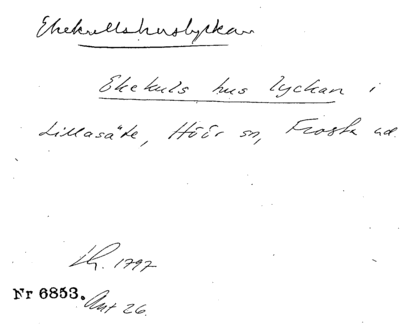 Ekekullshuslyckan
Ekekuls hus lyckan i
Lillasäte, Höör sn, Frosta hd.
Lh. 1797
Nr 6853. Ant 26.